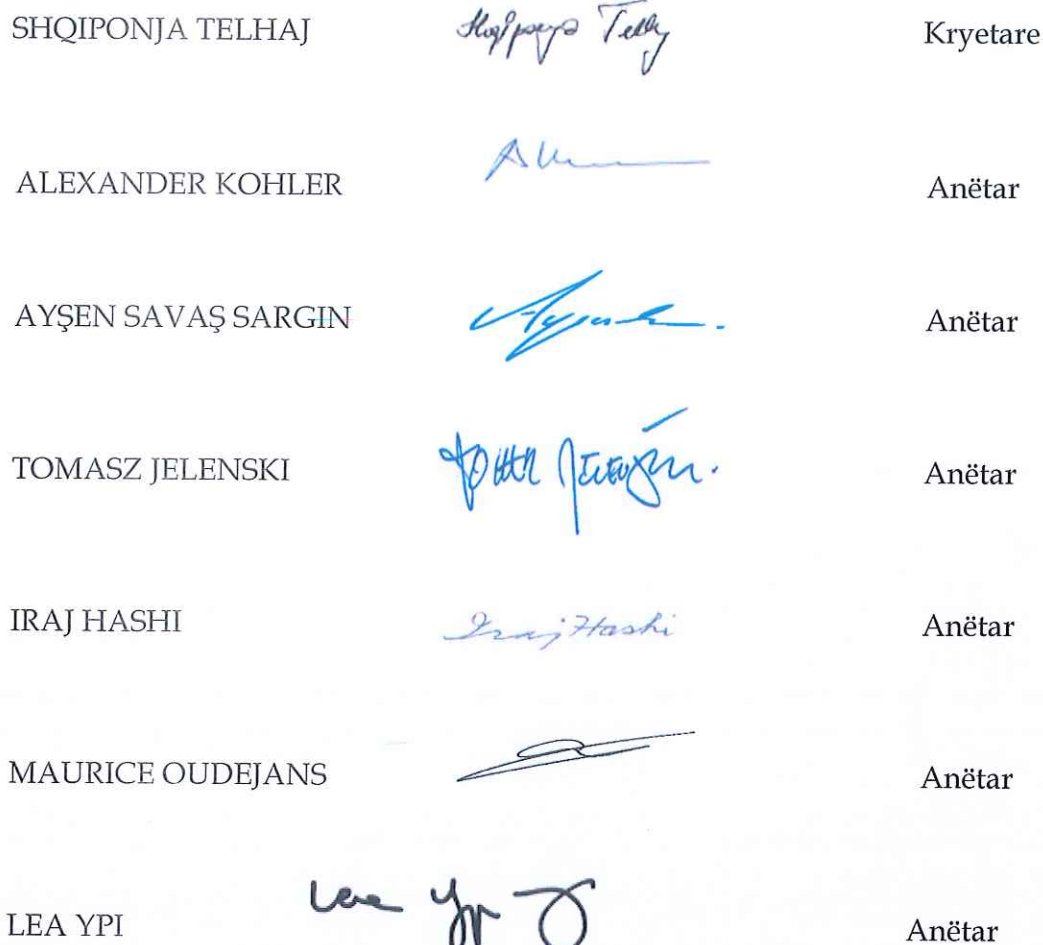 SHQIPONJA TELHAJ Shqiponja Telhaj Kryetare
ALEXANDER KOHLER Anëtar
AYŞEN SAVAŞ SARGIN Anëtar
TOMASZ JELENSKI Anëtar
IRAJ HASHI Iraj Hashi Anëtar
MAURICE OUDEJANS Anëtar
LEA YPI Lea Ypi Anëtar